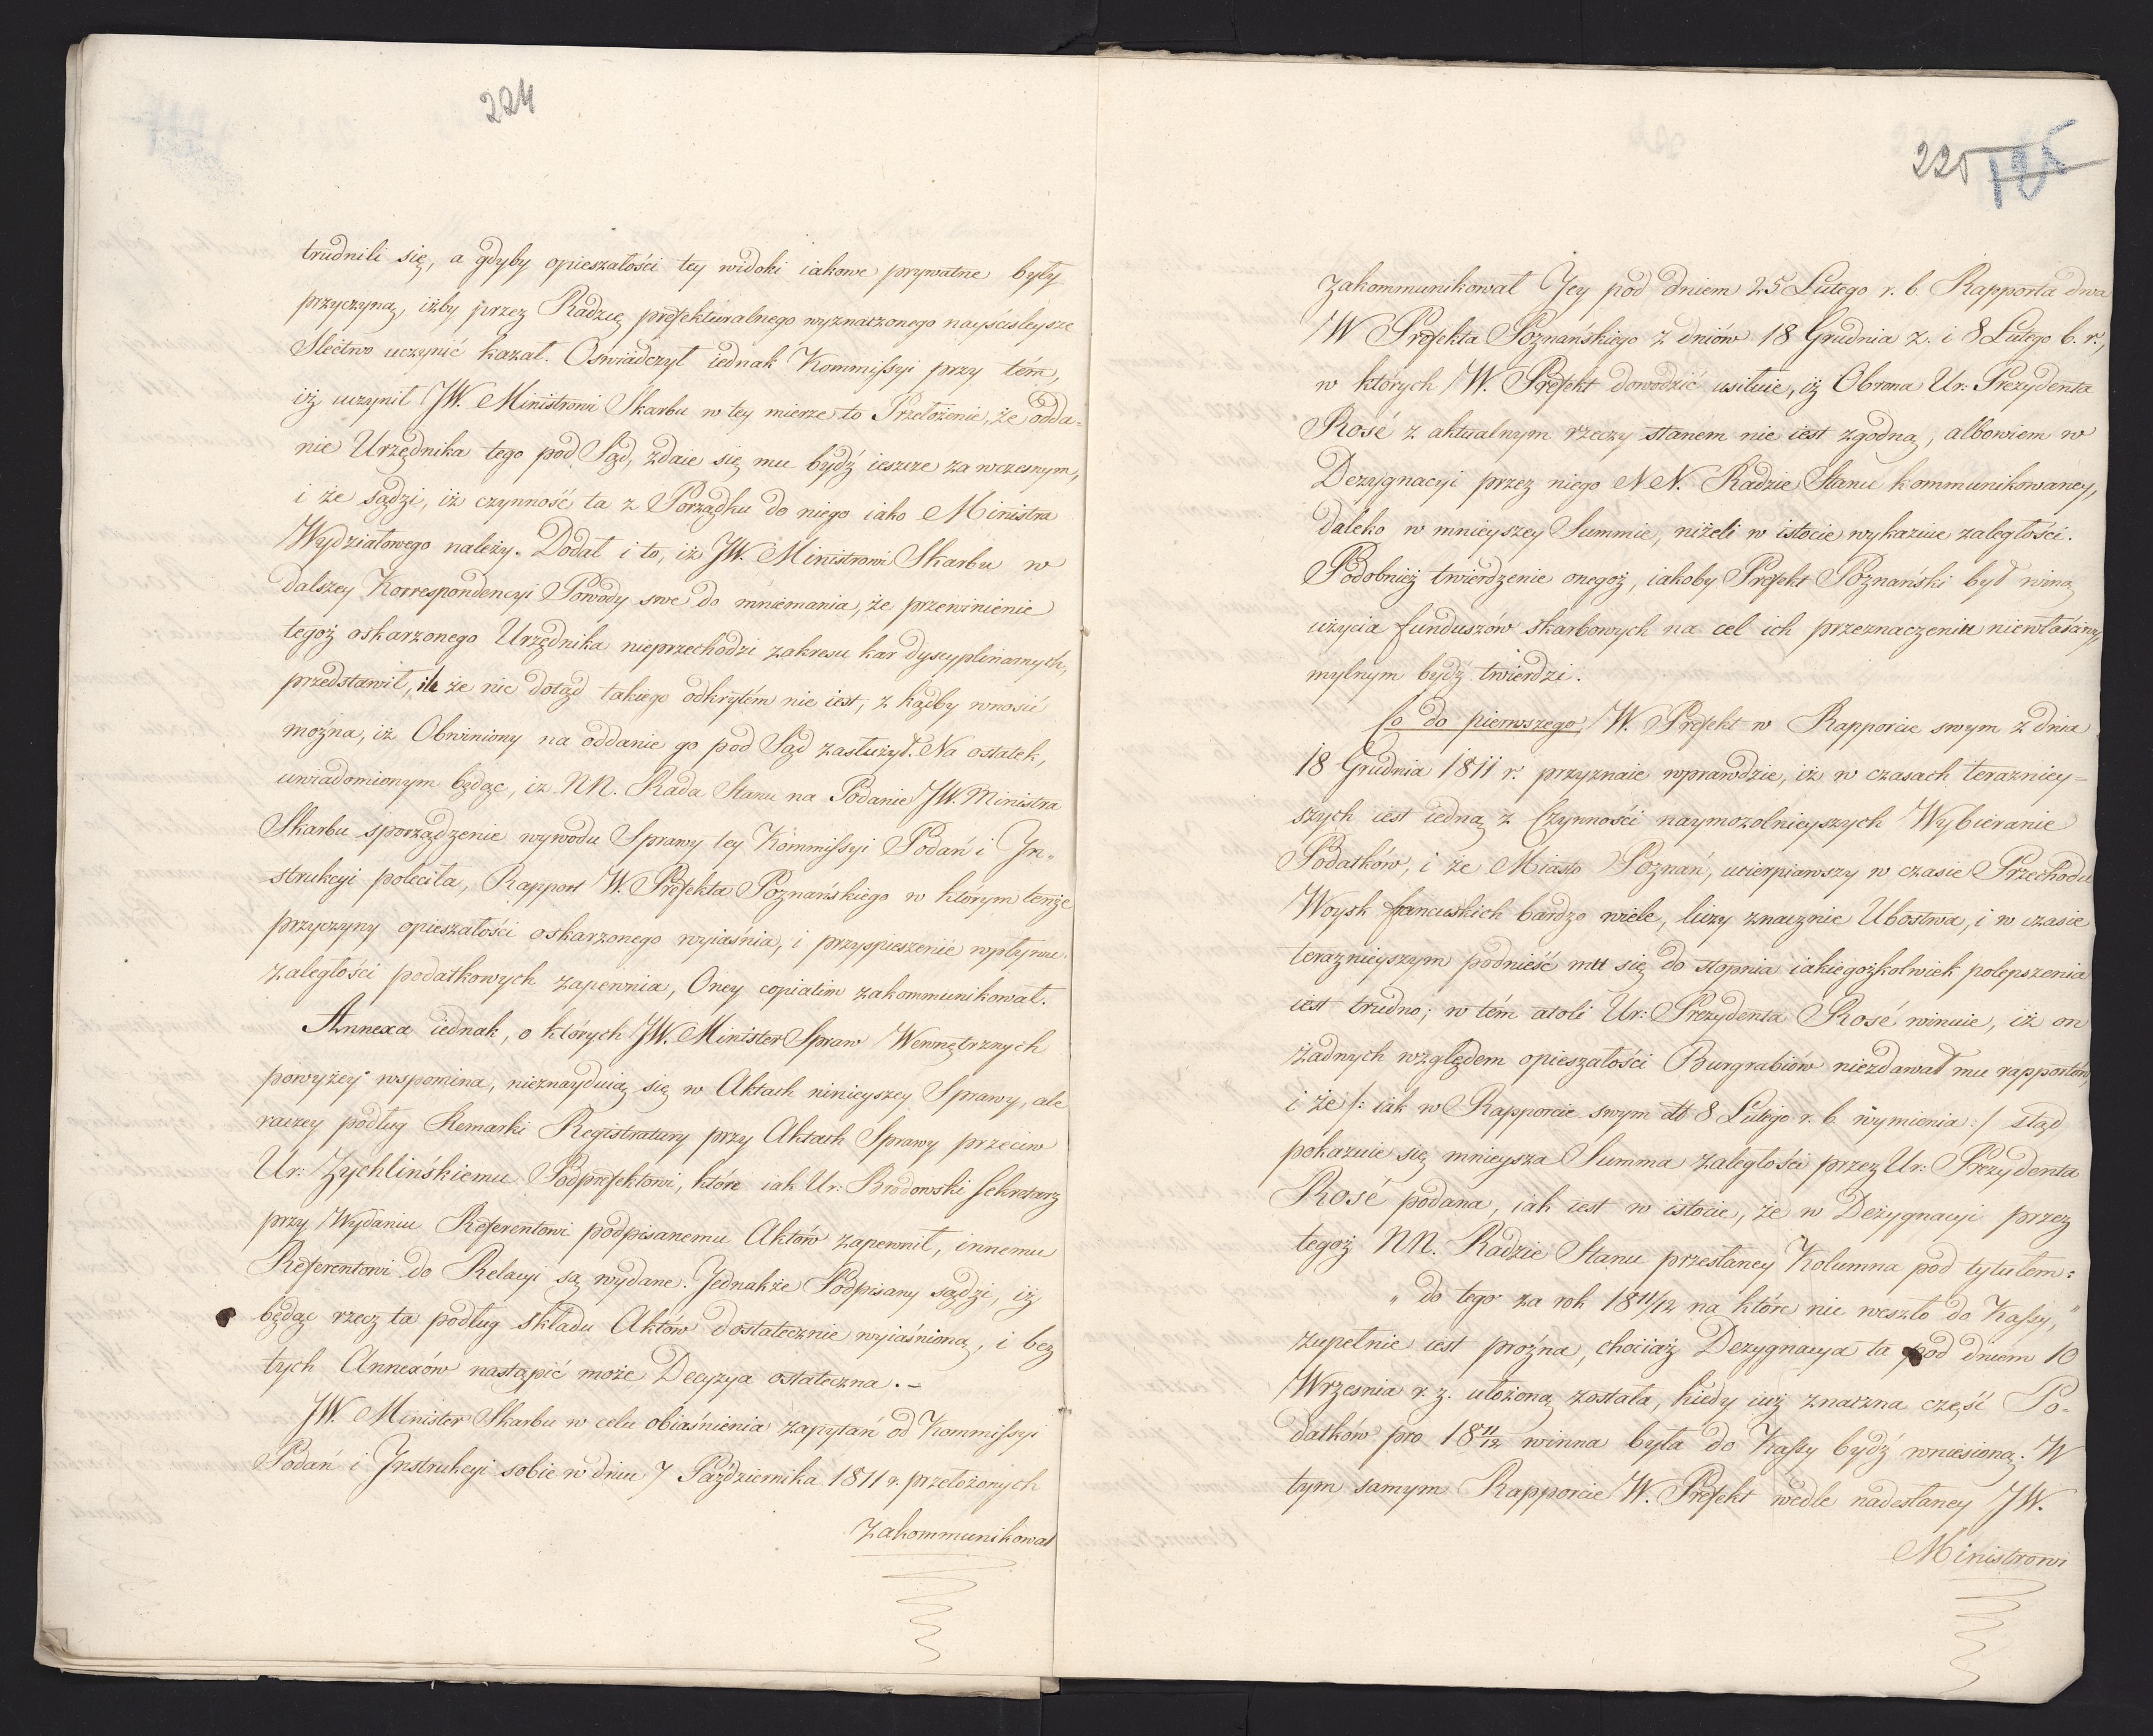 224
trudnili się, a gdyby opieszałości tey widoki iakowe prywatne były
przyczyną, iżby przez Radzcę prefekturalnego wyznaczonego nayściśleysze
Sledztwo uczynić kazał. Oswiadczył iednak Kommissyi przy tém,
iż uczynił JW. Ministrowi Skarbu w tey mierze to Przełożenie, że odda-
nie Urzędnika tego pod Sąd, zdaie się mu bydź ieszcze za wczesnym,
i że sądzi, iż czynność ta z Porządku do niego iako Ministra
Wydziałowego należy. Dodał i to, iż JW. Ministrowi Skarbu w
dalszey Korrespondencyi Powody swe do mniemania, że przewinienie
tegoż oskarzonego Urzędnika nieprzechodzi zakresu kar dyscyplinarnych,
przedstawił, ile że nic dotąd takiego odkrytém nie iest, z kądby wnosić
można, iż Obwiniony na oddanie go pod Sąd zasłużył. Na ostatek,
uwiadomionym będąc, iz NN. Rada Stanu na Podanie JW. Ministra
Skarbu sporządzenie wywodu Sprawy tey Kommissyi Podań i In-
strukcyi poleciła, Rapport W. Prefekta Poznańskiego w którym tenże
przyczyny opieszałości oskarzonego wyiaśnia, i przyspieszenie wpływu
zaległości podatkowych zapewnia, Oney copiatim zakommunikował.
Annexa iednak, o których JW. Minister Spraw Wewnętrznych
powyżey wspomina, nieznayduią się w Aktach ninieyszey Sprawy, ale
raczey podług Remarki Registratury przy Aktach Sprawy przeciw
Ur: Zychlińskiemu Podprefektowi, które iak Ur: Brodowski Sekretarz
przy Wydaniu Referentowi podpisanemu Aktów zapewnił, innemu
Referentowi do Relacyi są wydane. Jednakże Podpisany sądzi, iż
będąc rzecz ta podług składu Aktów dostatecznie wyiaśnioną, i bez
tych Annexów nastąpić może Decyzya ostateczna. -
JW. Minister Skarbu w celu obiaśnienia zapytań od Kommissyi
Podań i Instrukcyi sobie w dniu 7 Października 1811 r. przełożonych
zakommunikował
225 125
zakommunikował Jey pod dniem 25 Lutego r. b. Rapporta dwa
W Prefekta Poznańskiego z dniów 18 Grudnia z. i 8 Lutego b. r.,
w których W. Prefekt dowodzić usiłuie, iż Obrona Ur: Prezydenta
Rosé z aktualnym rzeczy stanem nie iest zgodną, albowiem w
Dezygnacyi przez niego NN. Radzie Stanu kommunikowaney,
daleko w mnieyszey Summie, niżeli w istocie wykazuie zaległości.
Podobnież twierdzenie onegoż, iakoby Prefekt Poznański był winą
użycia funduszów skarbowych na cel ich przeznaczeniu niewłaściwy,
mylnym bydź twierdzi.
Co do pierwszego W. Prefekt w Rapporcie swym z dnia
18 Grudnia 1811 r. przyznaie wprawdzie, iż w czasach terazniey-
szych iest iedną z Czynności naymozolnieyszych Wybieranie
Podatków, i że Miasto Poznań, ucierpiawszy w czasie Przechodu
Woysk francuskich bardzo wiele, liczy znacznie Ubostwa, i w czasie
teraznieyszym podnieść mu się do stopnia iakiegożkolwiek polepszenia
iest trudno; w tém atoli Ur: Prezydenta Rosé winuie, iż on
żadnych względem opieszałości Burgrabiów niezdawał mu rapportów
i że /: iak w Rapporcie swym dto 8 Lutego r. b. wymienia :/ stąd
pokazuie się mnieysza Summa zaległości przez Ur: Prezydenta
Rosé podana, iak iest w istocie, że w Dezygnacyi przez
tegoż NN. Radzie Stanu przesłaney Kolumna pod tytułem:
„ do tego za rok 1811/12 na które nic weszło do Kassy, "
zupełnie iest prożna, chociaż Dezygnacya ta pod dniem 10
Wrzesnia r. z. ułożoną została, kiedy iuż znaczna część Po-
datków pro 1811/12 winna była do Kassy bydź wniesioną. W
tym samym Rapporcie W. Prefekt wedle nadesłaney JW.
Ministrowi